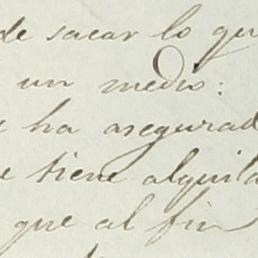 de sacar lo qu
un medio:
ha asegurad
e tiene alquila
que al fin